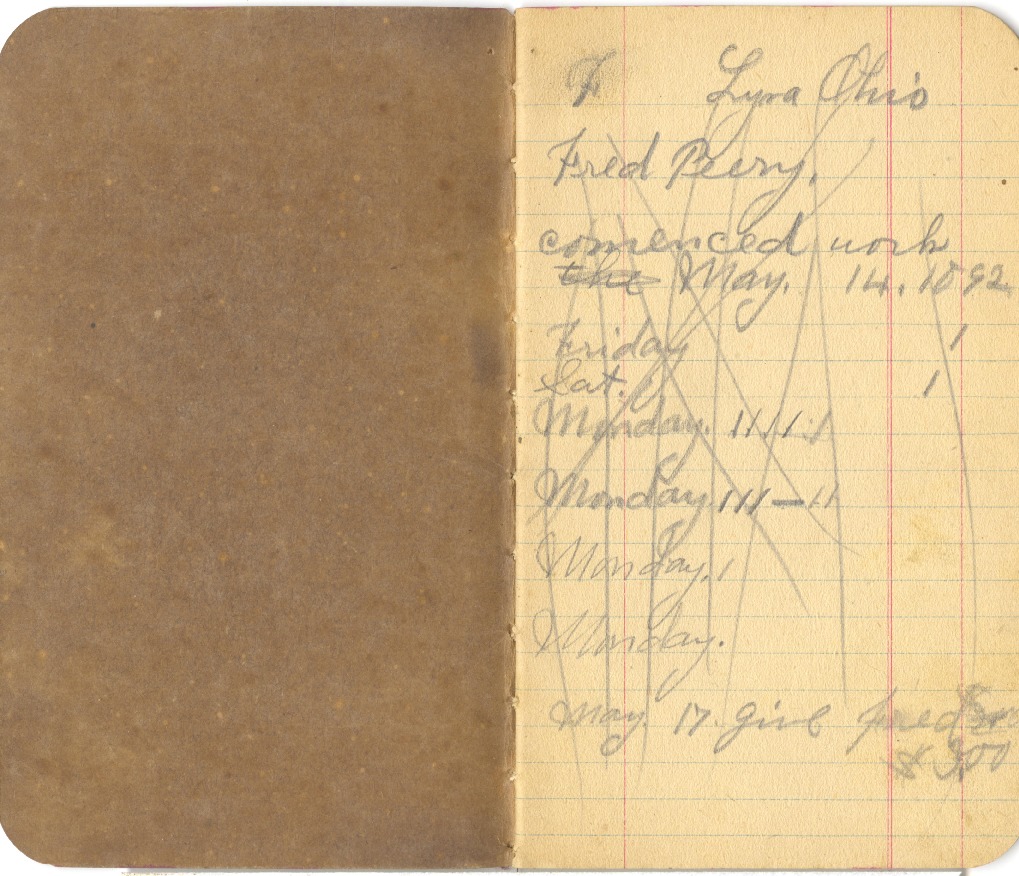 F Lyra Ohio
Fred Peery.
comenced work
the May. 14. 1892
Friday 1
Sat. 1
Monday. 11111
Monday. 111–11
Monday. 1
Monday.
May. 17. give fred
$ 3,00